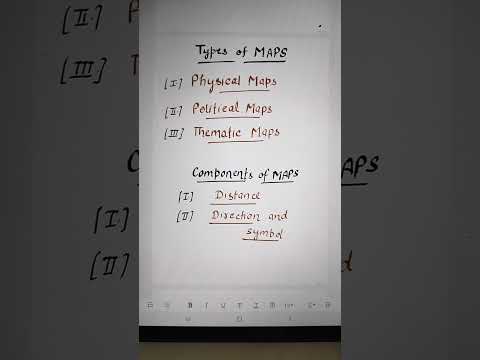 Types of MAPS
[I] Physical Maps
[II] Political Maps
[III] Thematic Maps
Components of MAPS
[I] Distance
[II] Direction and
symbol